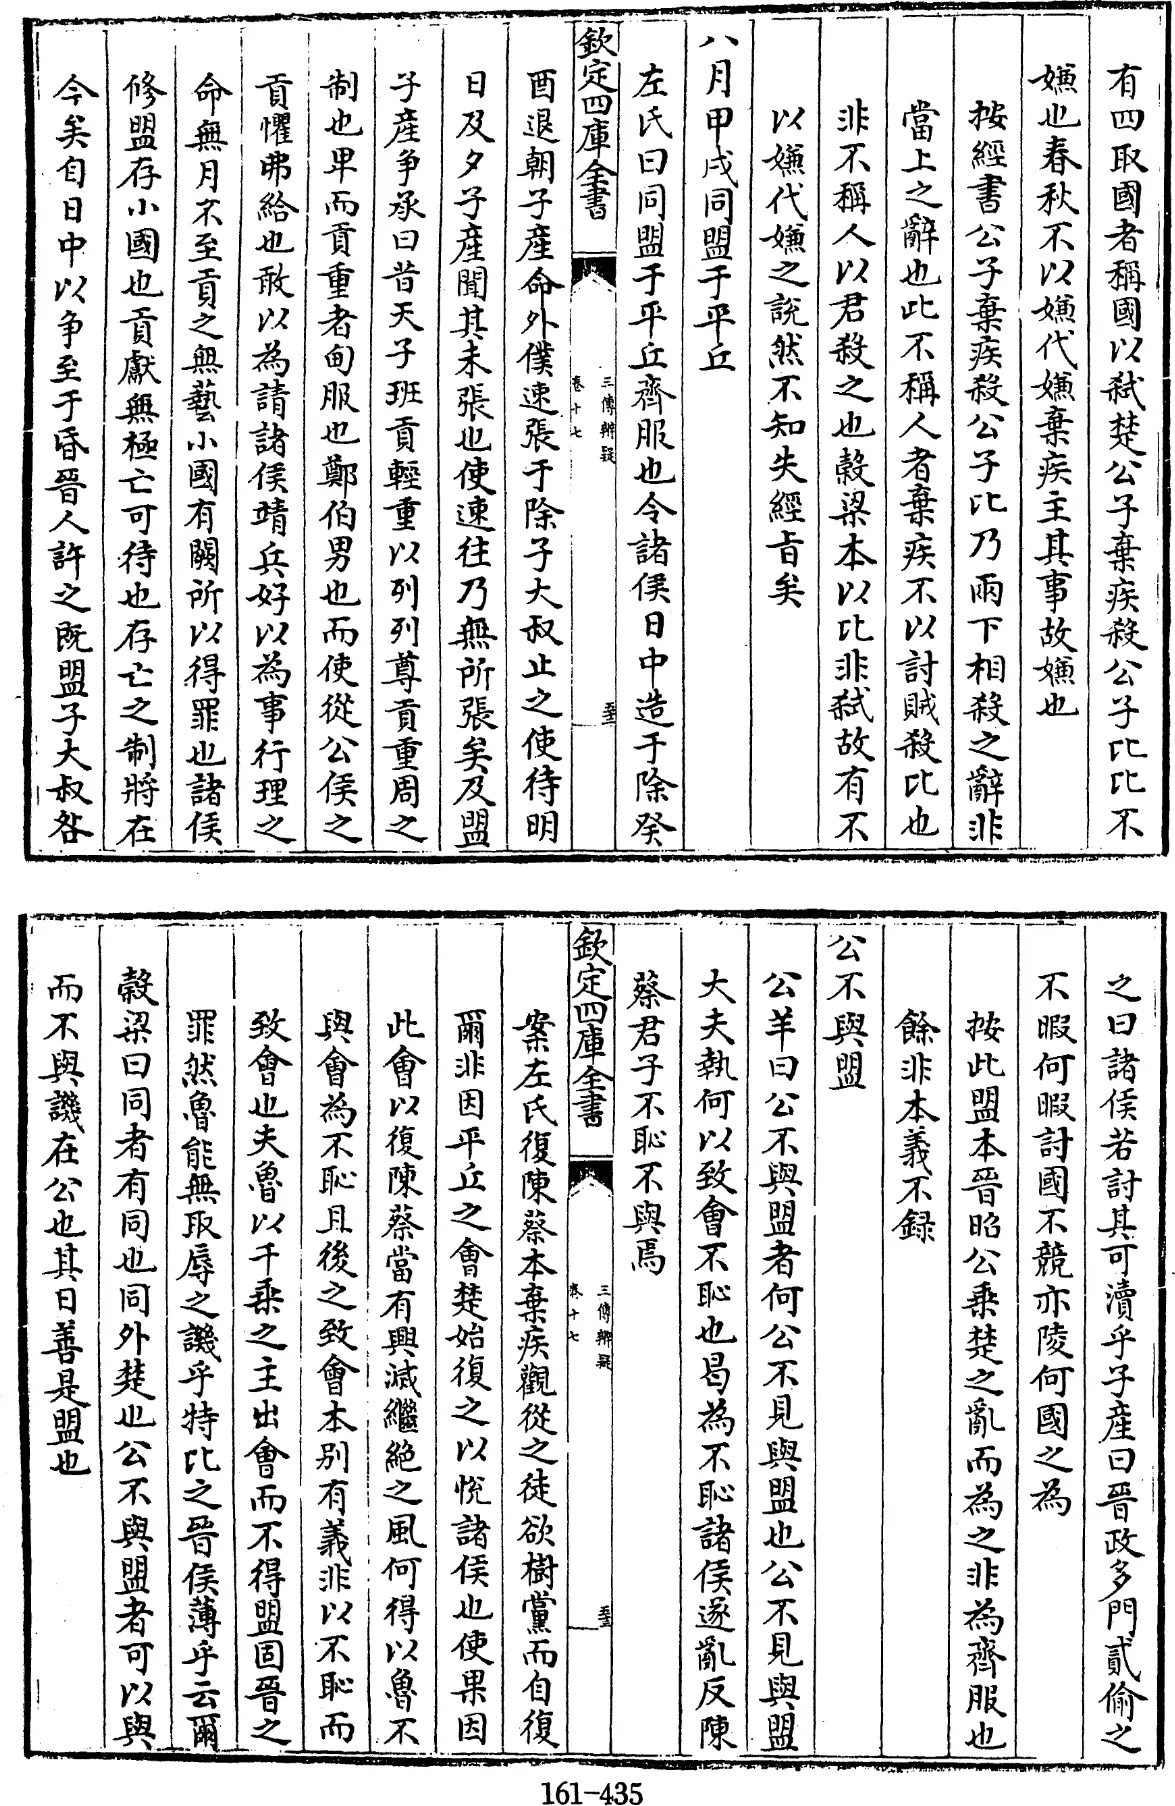 有四取國者稱國以弑楚公子棄疾殺公子比比不
嫌也春秋不以嫌代嫌棄疾主其事故嫌也
按經書公子棄疾殺公子比乃兩下相殺之辭非
當上之辭也此不稱人者棄疾不以討賊殺比也
非不稱人以君殺之也穀梁本以比非弑故有不
以嫌代嫌之說然不知失經旨矣
八月甲戌同盟于平丘
左氏曰同盟于平丘齊服也令諸侯日中造于除癸
欽定四庫全書
三傳辨疑
卷十七
酉退朝子產命外僕速張于除子大叔止之使待明
日及夕子產聞其未張也使速往乃無所張矣及盟
子產争承曰昔天子班貢輕重以列列尊貢重周之
制也卑而貢重者甸服也鄭伯男也而使從公侯之
貢懼弗給也敢以為請諸侯靖兵好以為事行理之
命無月不至貢之無藝小國有闕所以得罪也諸侯
修盟存小國也貢獻無極亡可待也存亡之制將在
今矣自日中以争至于昏晉人許之既盟子大叔咎
之曰諸侯若討其可瀆乎子產曰晉政多門貳偷之
不暇何暇討國不競亦陵何國之為
按此盟本晉昭公乘楚之亂而為之非為齊服也
餘非本義不錄
公不與盟
公羊曰公不與盟者何公不見與盟也公不見與盟
大夫執何以致會不恥也曷為不恥諸侯遂亂反陳
蔡君子不恥不與焉
欽定四庫全書
三傳辨疑
卷十七
案左氏復陳蔡本棄疾觀從之徒欲樹黨而自復
爾非因平丘之會楚始復之以悅諸侯也使果因
此會以復陳蔡當有興滅繼絶之風何得以魯不
與會為不恥且後之致會本别有義非以不恥而
致會也夫魯以千乘之主出會而不得盟固晉之
罪然魯能無取辱之譏乎特比之晉侯薄乎云爾
穀梁曰同者有同也同外楚也公不與盟者可以與
而不與譏在公也其日善是盟也
161-435